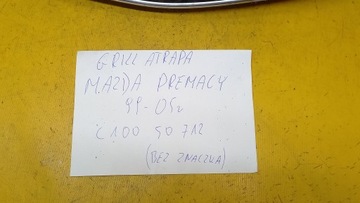 GRILL ATRAPA
MAZDA PREMACY
99-05r
C100 50 712
(BEZ ZNACZKA)